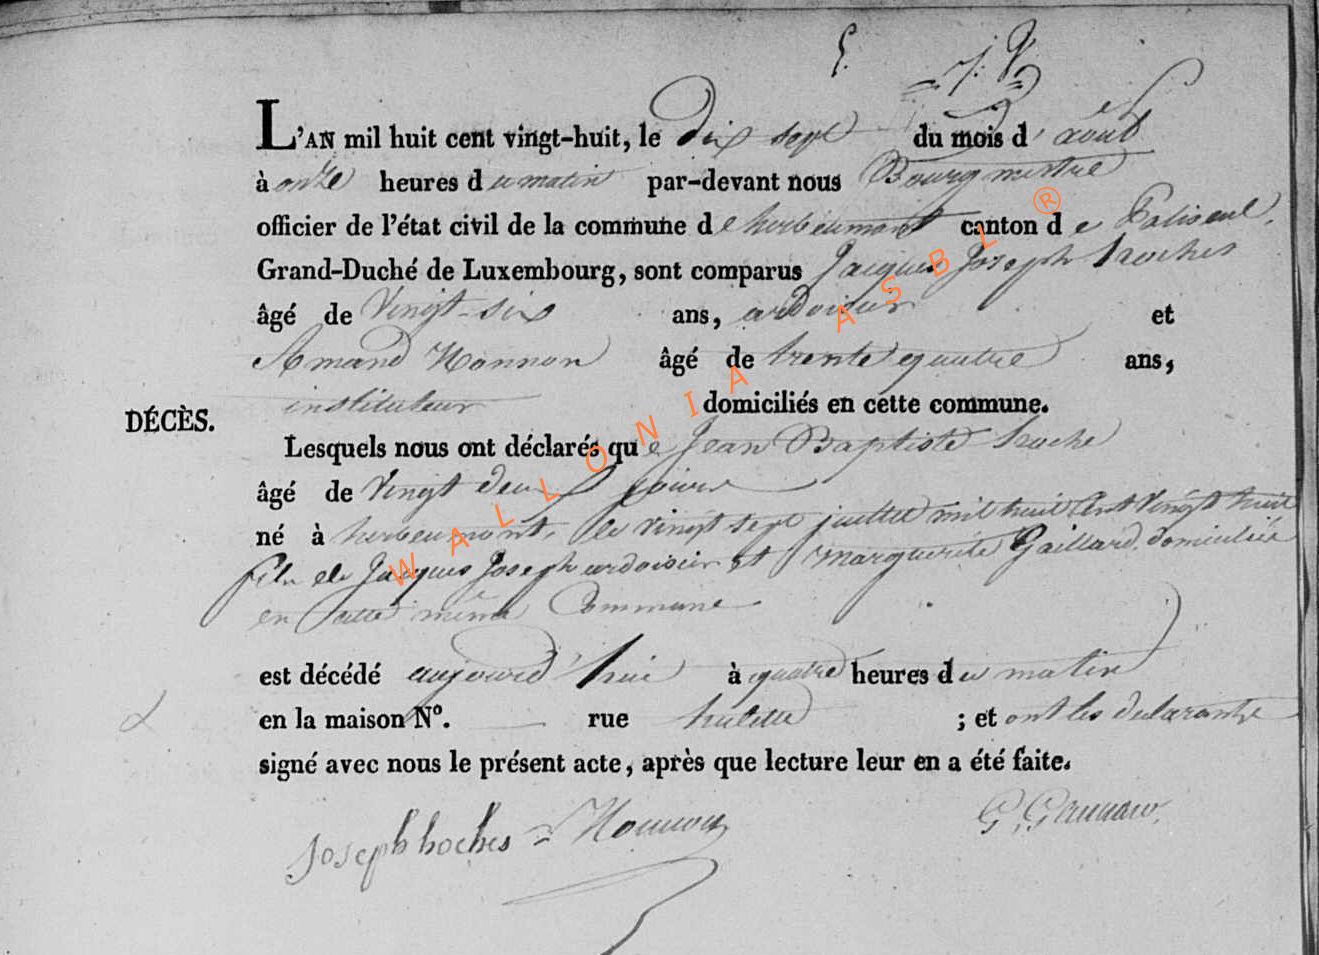 L'AN mil huit cent vingt-huit, le dix sept du mois d'aout
à onze heures du matin par-devant nous Bourgmestre
officier de l'état civil de la commune de herbeumont canton de Paliseul,
Grand-Duché de Luxembourg, sont comparus Jacques Joseph hoches
âgé de Vingt-six ans, ardoisier et
Amand Honnon âgé de trente quatre ans,
instituteur domiciliés en cette commune.
DÉCÈS.
Lesquels nous ont déclarés que Jean Baptiste hoche
âgé de Vingt deux jours
né à herbeumont, le vingt sept juillet mil huit Cent Vingt huit
fils de Jacques Joseph ardoisier et Marguerite Gaillard, domiciliés
en cette même Commune
est décédé aujourd'hui à quatre heures du matin
en la maison N°. rue hulette ; et ont les declarants
signé avec nous le présent acte, après que lecture leur en a été faite.
Joseph hoches Honnon
WALLONIA ASBL ®